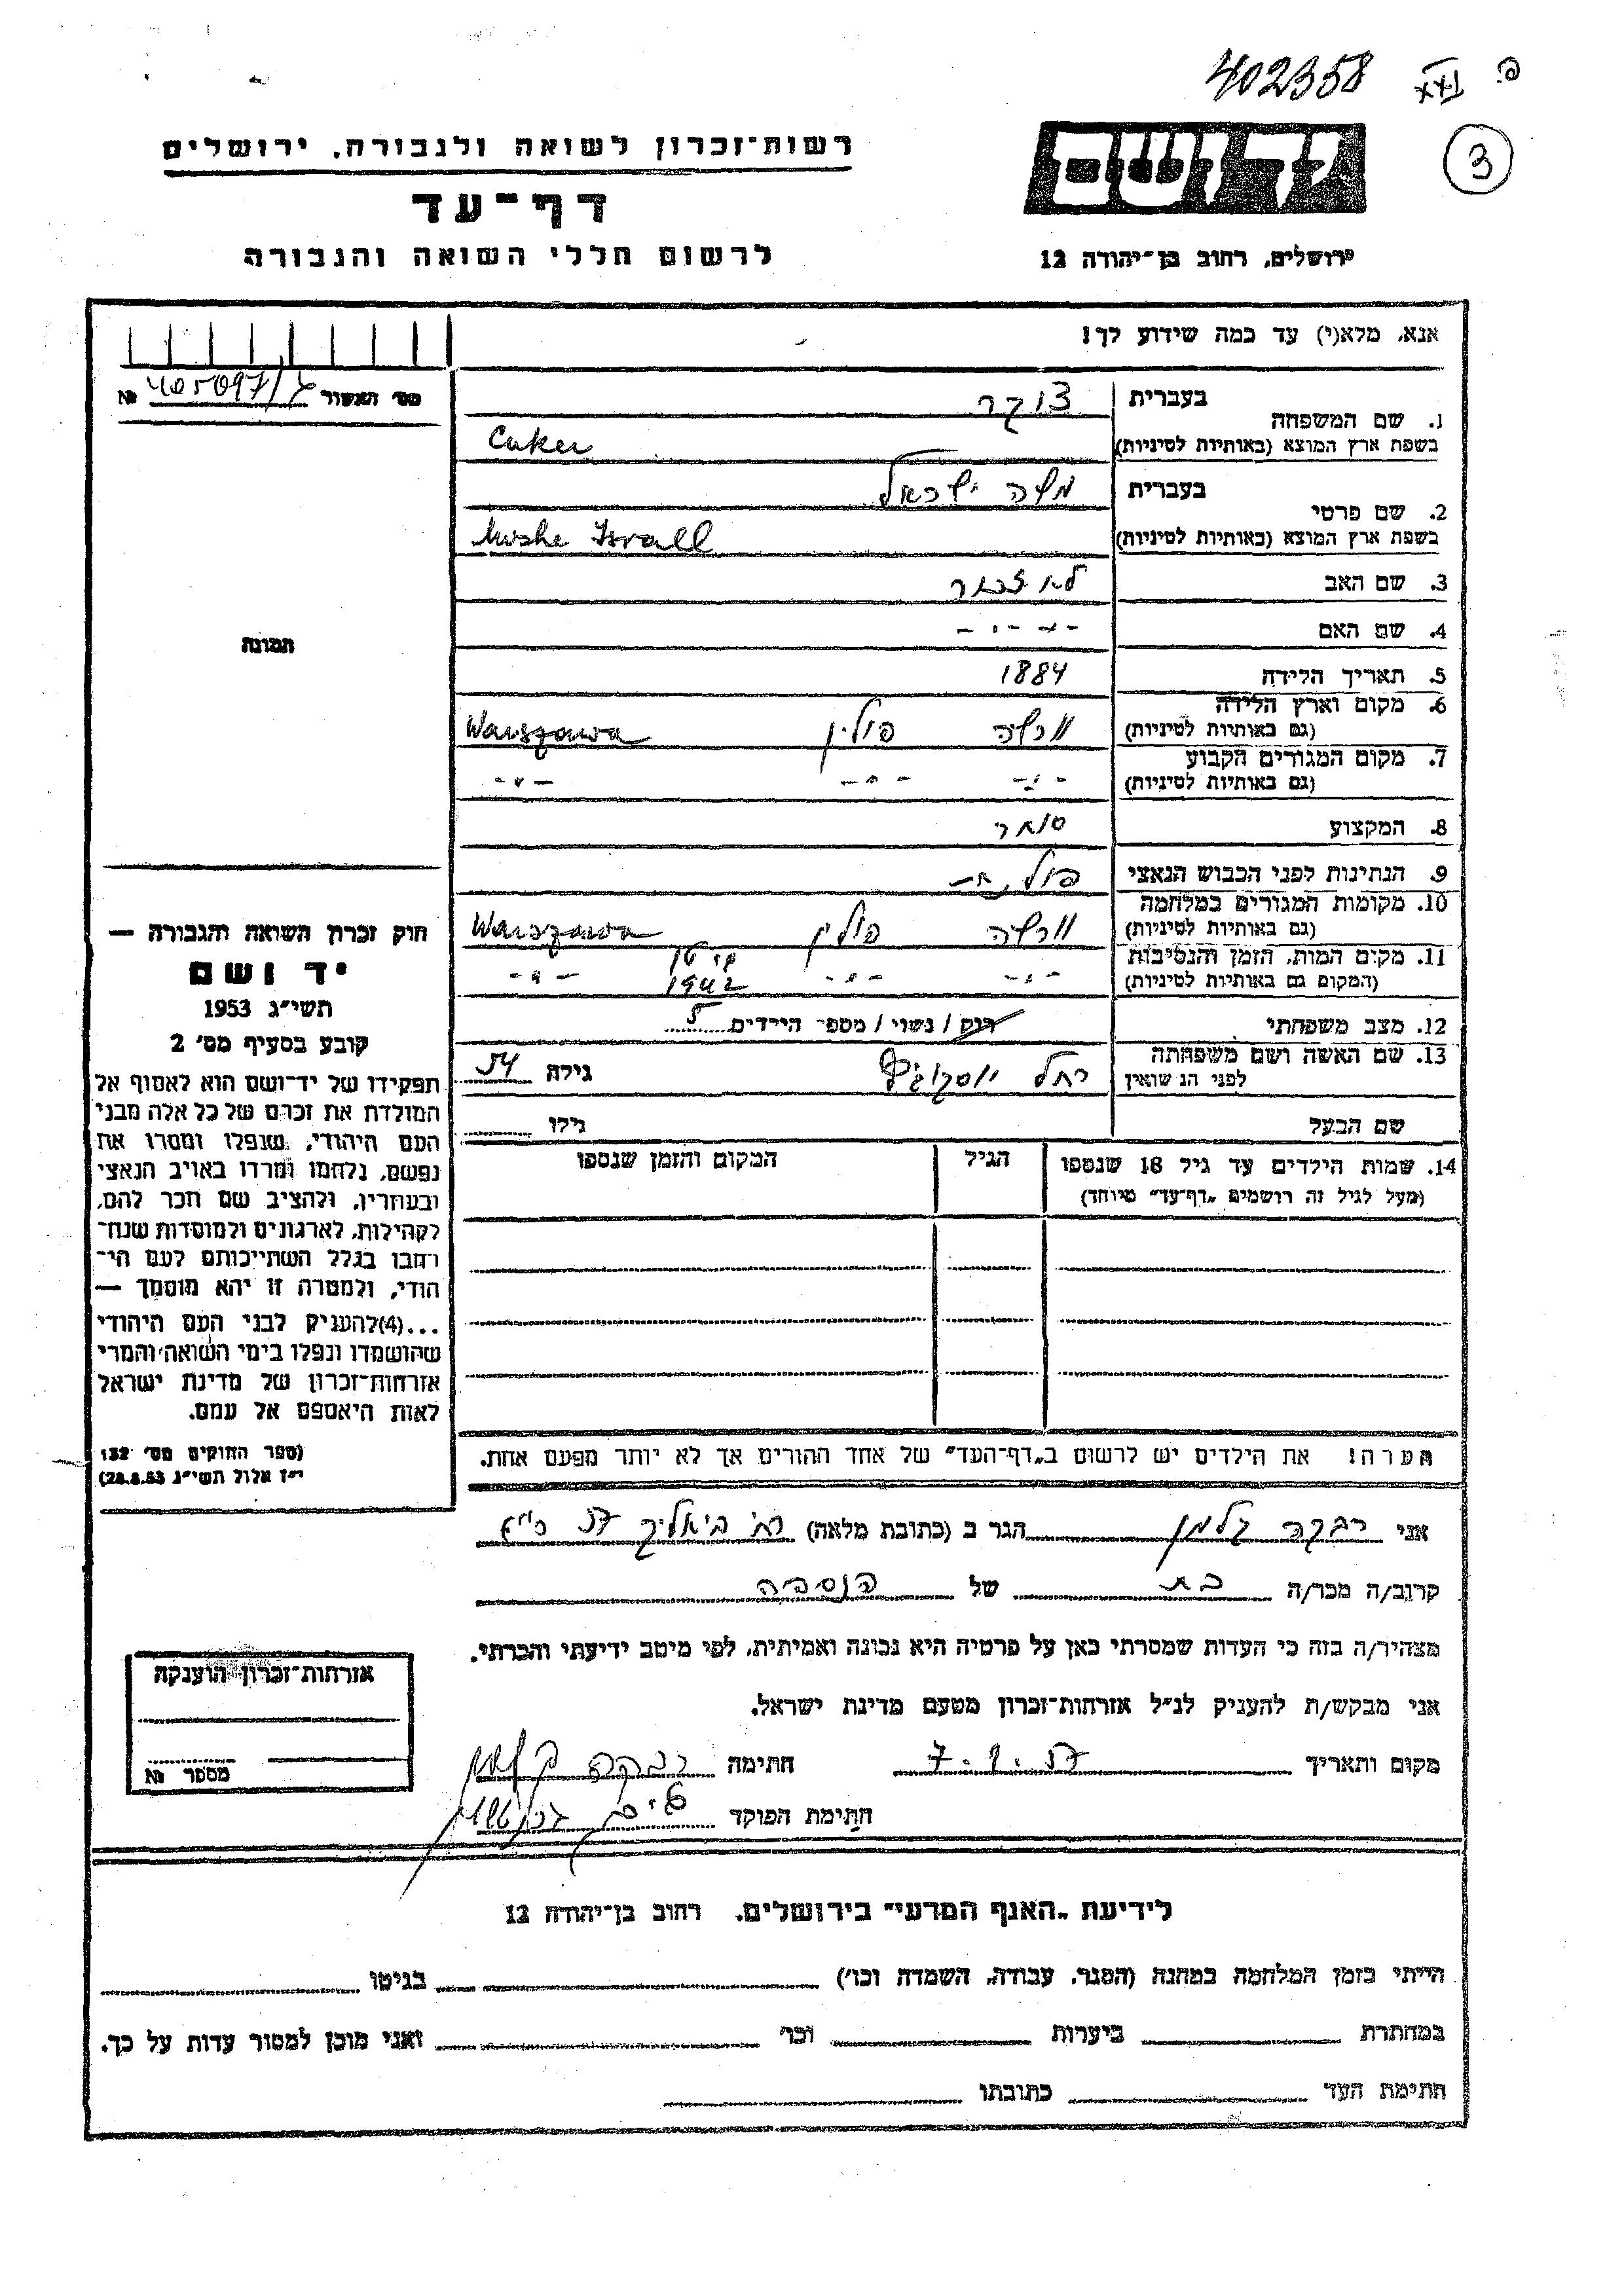 402358 XXI פ.
3
יד ושם
ירושלים, רחוב בן־יהודה 12
רשות־זכרון לשואה ולגבורה, ירושלים
דף־עד
לרשום חללי השואה והגבורה
אנא, מלא(י) עד כמה שידוע לך!
מס׳ האשור 405097/7 №
1. שם המשפחה
בעברית צוקר
בשפת ארץ המוצא (באותיות לטיניות) Cuker
2. שם פרטי
בעברית משה ישראל
בשפת ארץ המוצא (באותיות לטיניות) Moshe Israll
3. שם האב לא זכור
4. שם האם - " -
5. תאריך הלידה 1884
6. מקום וארץ הלידה
(גם באותיות לטיניות) וורשה פולין Warszawa
7. מקום המגורים הקבוע
(גם באותיות לטיניות) - " - - " - - " -
8. המקצוע סוחר
9. הנתינות לפני הכבוש הנאצי פולנית
10. מקומות המגורים במלחמה
(גם באותיות לטיניות) וורשה פולין Warszawa
11. מקום המות, הזמן והנסיבות
(המקום גם באותיות לטיניות) - " - - " - 1942 - " -
12. מצב משפחתי רוק / נשוי / מספר הילדים 5
13. שם האשה ושם משפחתה
לפני הנשואין רחל גילה 54
שם הבעל גילו
14. שמות הילדים עד גיל 18 שנספו הגיל המקום והזמן שנספו
(מעל לגיל זה רושמים „דף־עד״ מיוחד)
הערה! את הילדים יש לרשום ב„דף־העד״ של אחד ההורים אך לא יותר מפעם אחת.
תמונה
חוק זכרון השואה והגבורה —
יד ושם
תשי״ג 1953
קובע בסעיף מס׳ 2
תפקידו של יד־ושם הוא לאסוף אל
המולדת את זכרם של כל אלה מבני
העם היהודי, שנפלו ומסרו את
נפשם, נלחמו ומרדו באויב הנאצי
ובעוזריו, ולהציב שם וזכר להם,
לקהילות, לארגונים ולמוסדות שנח־
רבו בגלל השתייכותם לעם הי־
הודי, ולמטרה זו יהא מוסמך —
...(4)להעניק לבני העם היהודי
שהושמדו ונפלו בימי השואה והמרי
אזרחות־זכרון של מדינת ישראל
לאות היאספם אל עמם.
(ספר החוקים מס׳ 132
י״ז אלול תשי״ג 28.8.53)
אני רבקה קלמן הגר ב (כתובת מלאה) רח׳ ביאליק 57
קרוב/ה מכר/ה בת של הנספה
מצהיר/ה בזה כי העדות שמסרתי כאן על פרטיה היא נכונה ואמיתית, לפי מיטב ידיעתי והכרתי.
אני מבקש/ת להעניק לנ״ל אזרחות־זכרון מטעם מדינת ישראל.
מקום ותאריך 7.1.57 חתימה רבקה קלמן
חתימת הפוקד
אזרחות־זכרון הוענקה
מספר №
לידיעת „האגף המדעי״ בירושלים, רחוב בן־יהודה 12
הייתי בזמן המלחמה במחנה (הסגר, עבודה, השמדה וכו׳) בגיטו
במחתרת ביערות וכו׳ ואני מוכן למסור עדות על כך.
חתימת העד כתובתו